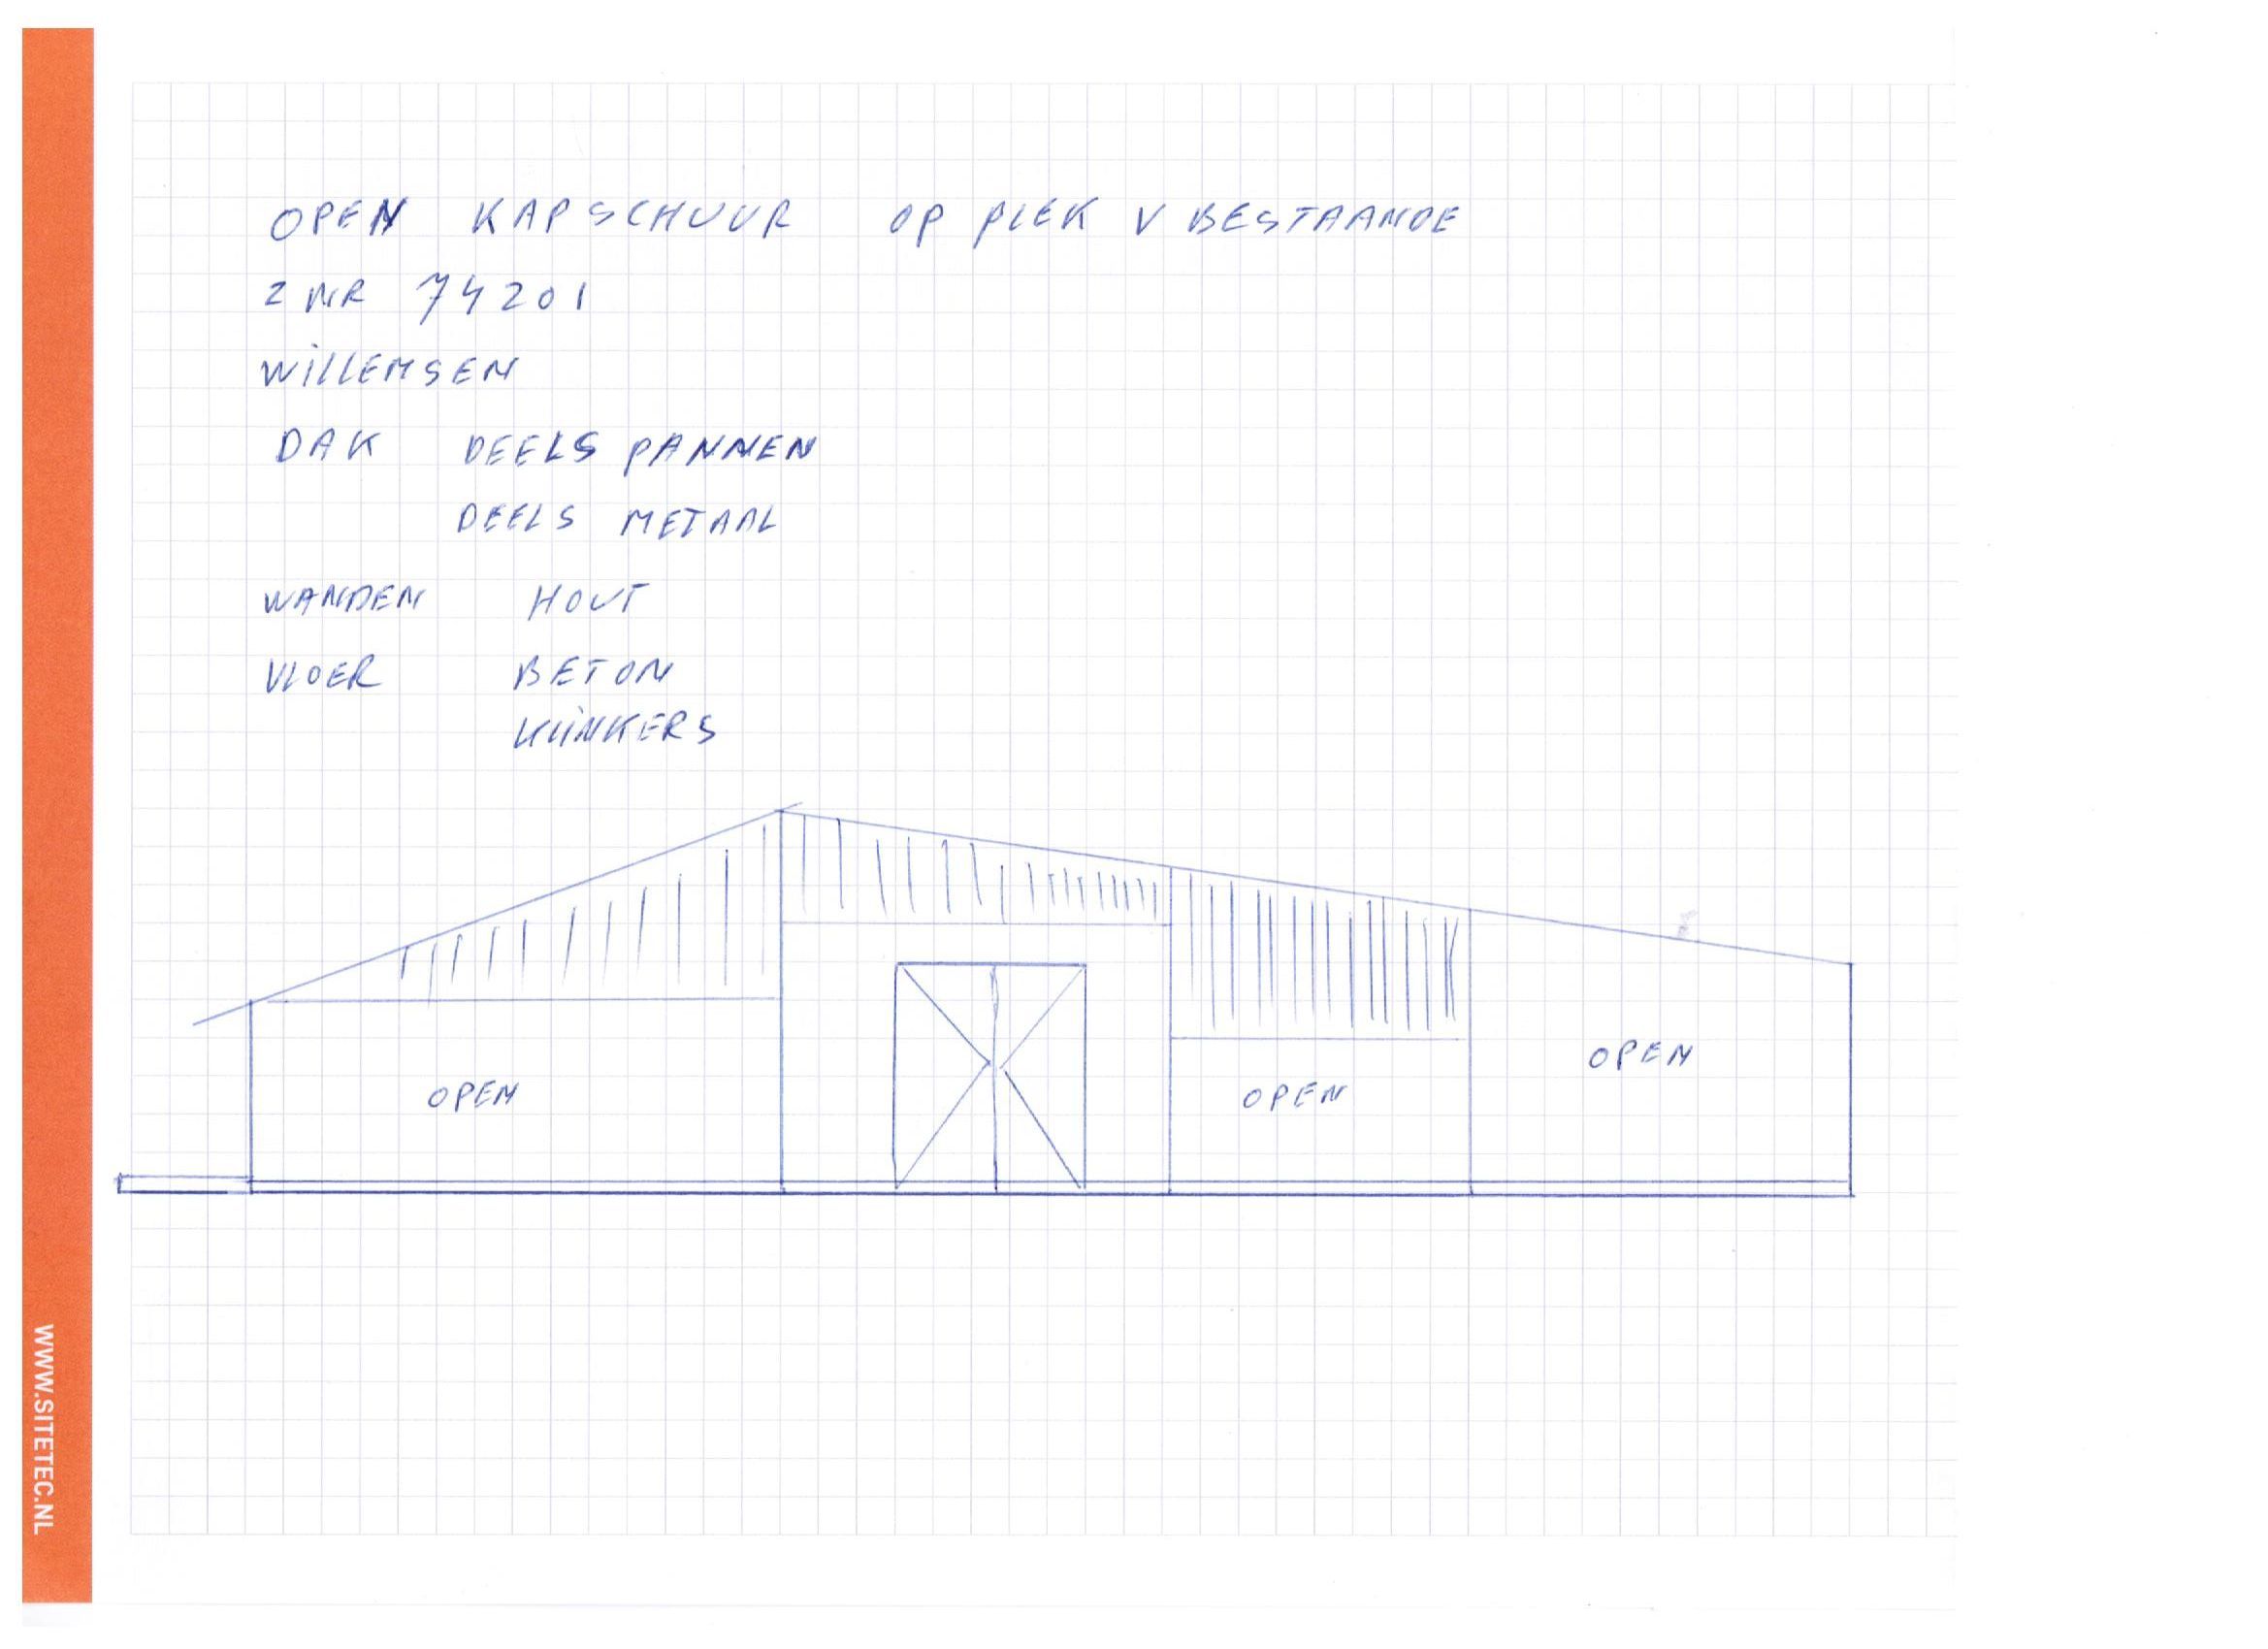 OPEN KAPSCHUUR OP PLEK V BESTAANDE
Z NR 74201
WILLEMSEN
DAK DEELS PANNEN
DEELS METAAL
WANDEN HOUT
VLOER BETON
KLINKERS
OPEN
OPEN
OPEN
WWW.SITETEC.NL